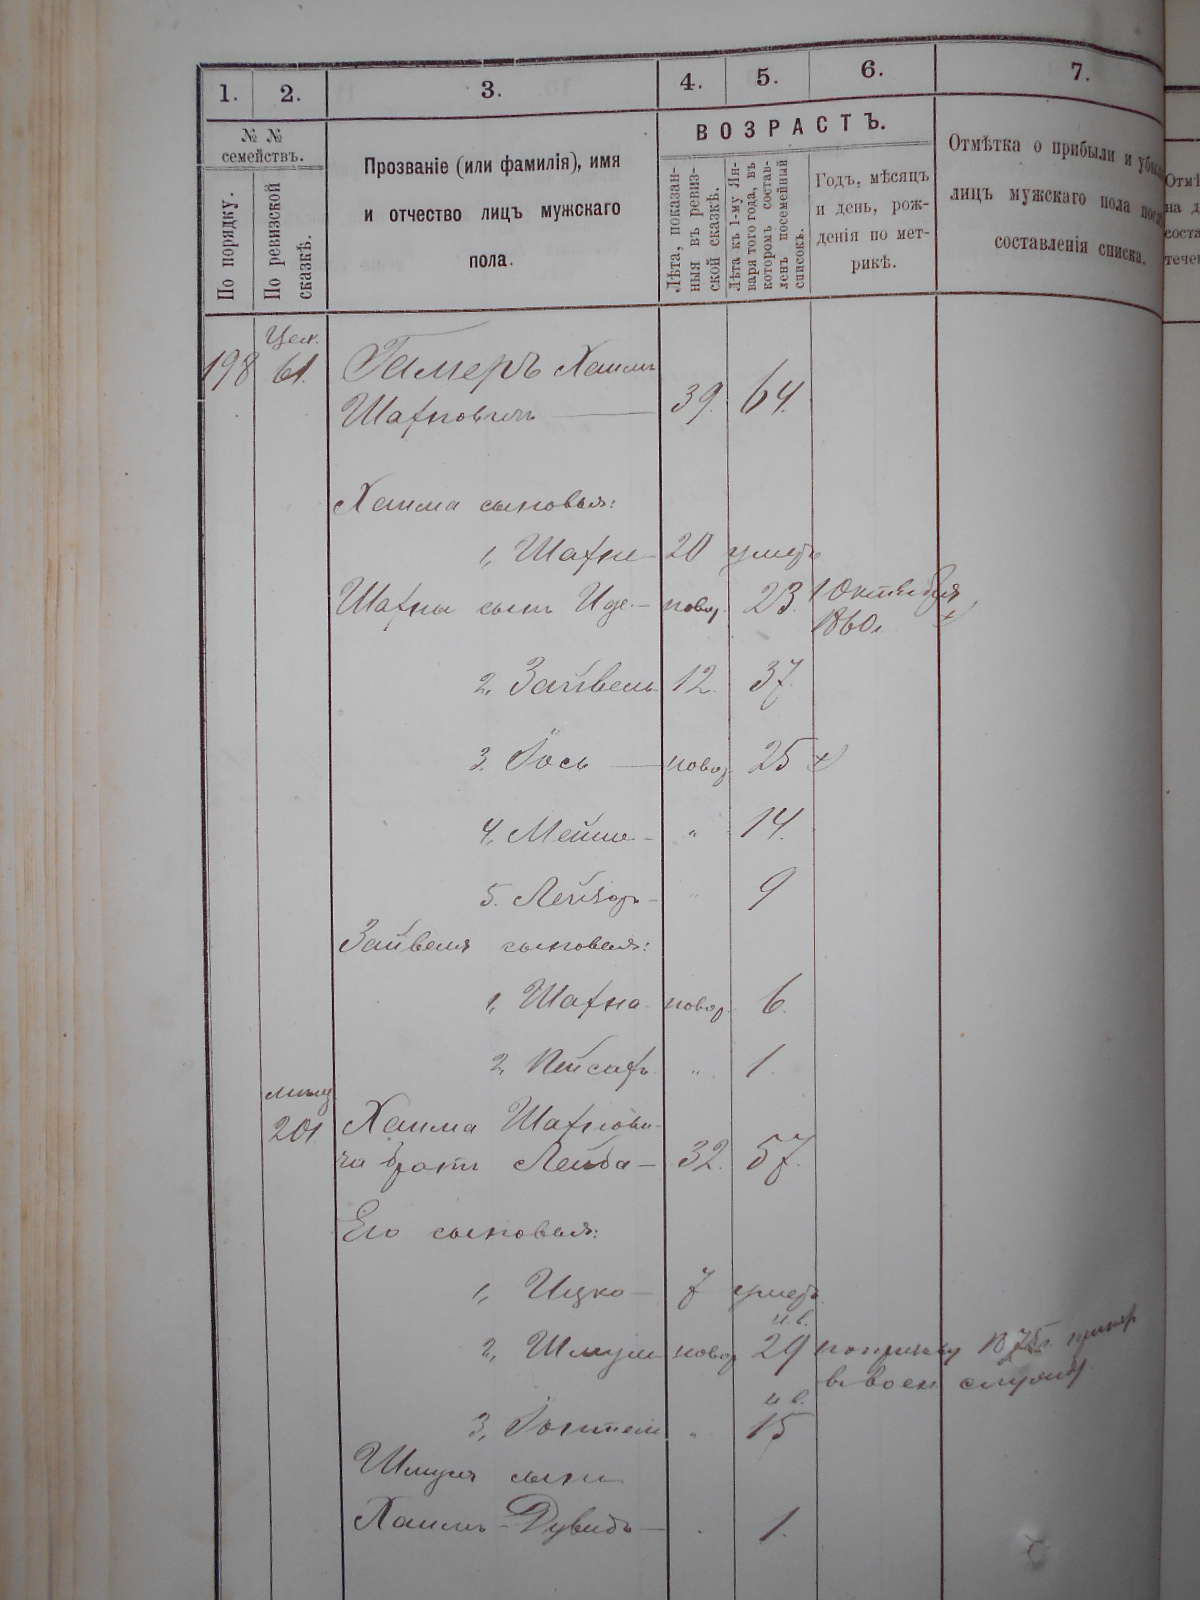 1. 2. 3. 4. 5. 6. 7.
№ № семействъ.
По порядку.
По ревизской сказкѣ.
Прозваніе (или фамилія), имя
и отчество лицъ мужскаго
пола.
ВОЗРАСТЪ.
Лѣта, показан-
ныя въ ревиз-
ской сказкѣ.
Лѣта къ 1-му Ян-
варя того года, въ
которомъ состав-
ленъ посемейный
списокъ.
Годъ, мѣсяцъ
и день, рож-
денія по мет-
рикѣ.
Отмѣтка о прибыли и
лицъ мужскаго пола
составленія списка.
198 61. Гамеръ Хаимъ
Шахновичъ 39. 64.
Хаима сыновья:
1, Шахне 20 умеръ
Шахна сынъ Иде. новор. 23. 1 Октября
1860.
2, Зайвель 12. 37.
3. Іось новор. 25
4, Мейше " 14.
5. Лейзоръ " 9
Зайвеля сыновья:
1, Шахна новор. 6.
2, Пейсахъ " 1.
201 Хаима Шахнови-
ча братъ Лейба 32. 57.
Его сыновья:
1, Ицко 7 умеръ
2, Шмуль новор 29
3, " 15
Шмуля сынъ
Хаимъ-Дувидъ 1.